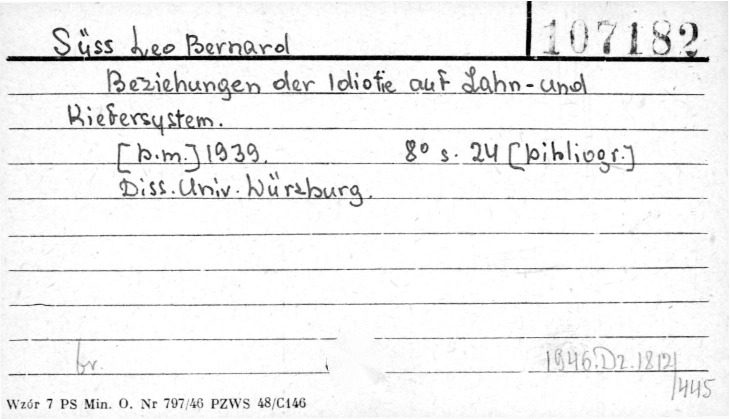 Süss Leo Bernard
107182
Beziehungen der Idiotie auf Zahn- und
Kiefersystem.
[b.m.] 1939. 8° s. 24 [bibliogr.]
Diss. Univ. Würzburg.
br.
1946.Dz.1812/
/445
Wzór 7 PS Min. O. Nr 797/46 PZWS 48/C146